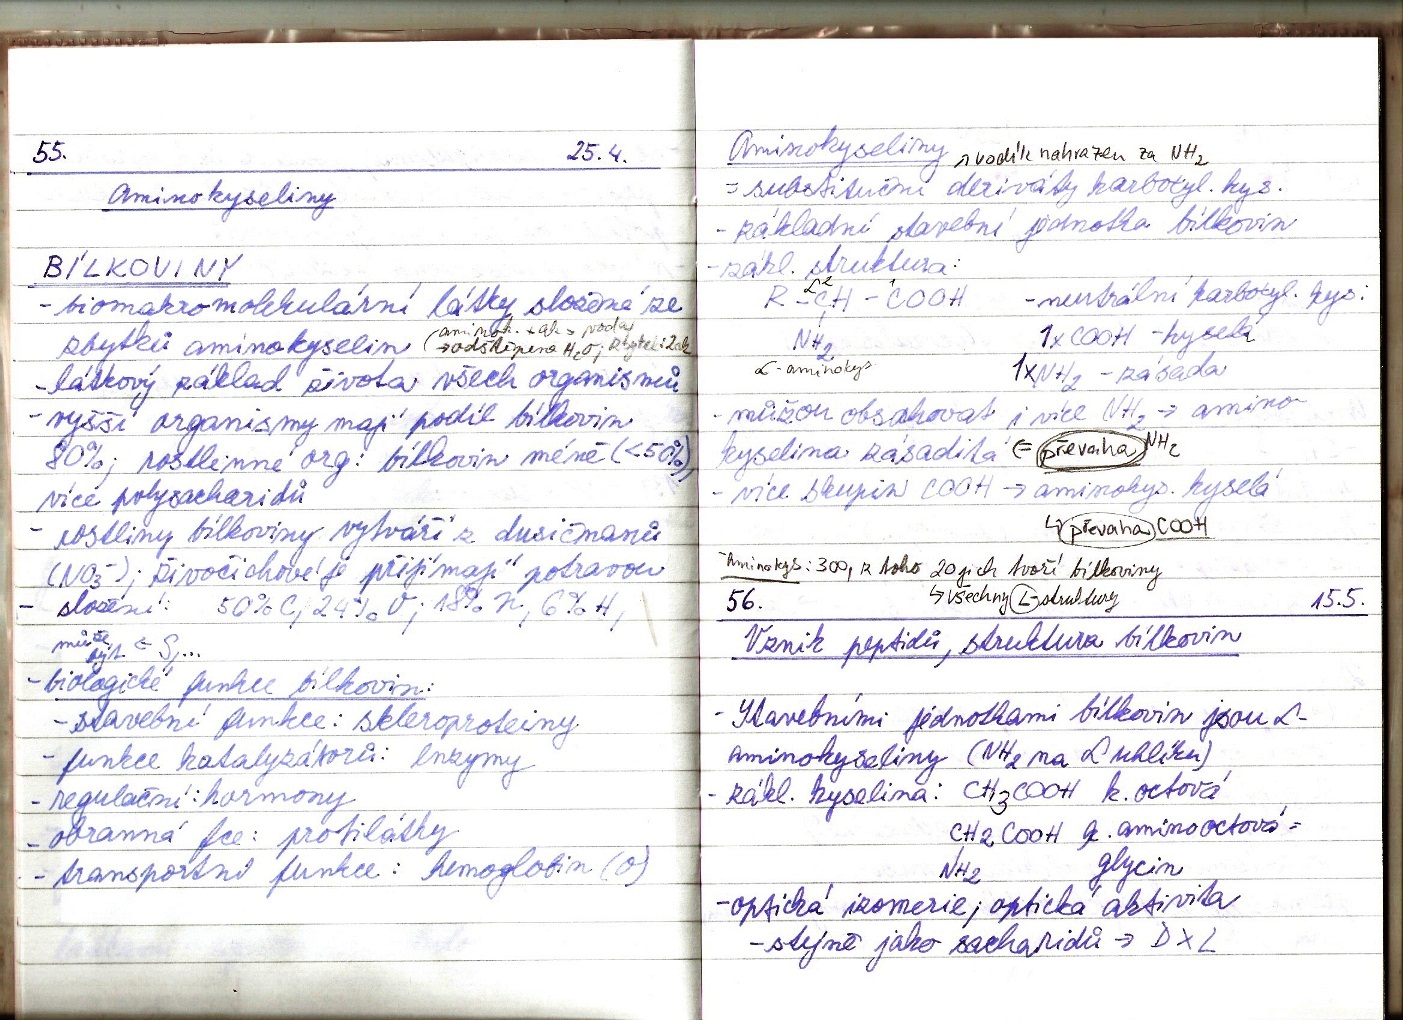 55. 25.4.
Aminokyseliny
BÍLKOVINY
- biomakromolekulární látky složené ze
zbytků aminokyselin (aminok. + ak → voda)
→ odštěpena H₂O; zbytek: 2ak
- látkový základ života všech organismů
- vyšší organismy mají podíl bílkovin
80%; rostlinné org: bílkovin méně (<50%),
více polysacharidů
- rostliny bílkoviny vytváří z dusičnanů
(NO₃⁻); živočichové je přijímají potravou
- složení: 50% C, 24% O, 18% N, 6% H,
může být ← S,...
- biologické funkce bílkovin:
- stavební funkce: skleroproteiny
- funkce katalyzátorů: enzymy
- regulační: hormony
- obranná fce: protilátky
- transportní funkce: hemoglobin (O)
Aminokyseliny → vodík nahrazen za NH₂
= substituční deriváty karboxyl. kys.
- základní stavební jednotka bílkovin
- zákl. struktura:
R - CH - COOH - neutrální karboxyl. kys:
α 2 1
NH₂ 1x COOH - kyselá
α-aminokys 1x NH₂ - zásada
- můžou obsahovat i více NH₂ → amino-
kyselina zásaditá ⇐ převaha NH₂
- více skupin COOH → aminokys. kyselá
↳ převaha COOH
Aminokys: 300, z toho 20 jich tvoří bílkoviny
↳ všechny L-struktury
56. 15.5.
Vznik peptidů, struktura bílkovin
- Stavebními jednotkami bílkovin jsou α-
aminokyseliny (NH₂ na α uhlíku)
- zákl. kyselina: CH₃COOH k. octová
CH₂COOH k. aminooctová =
NH₂ glycin
- optická izomerie; optická aktivita
- stejně jako sacharidů → D x L